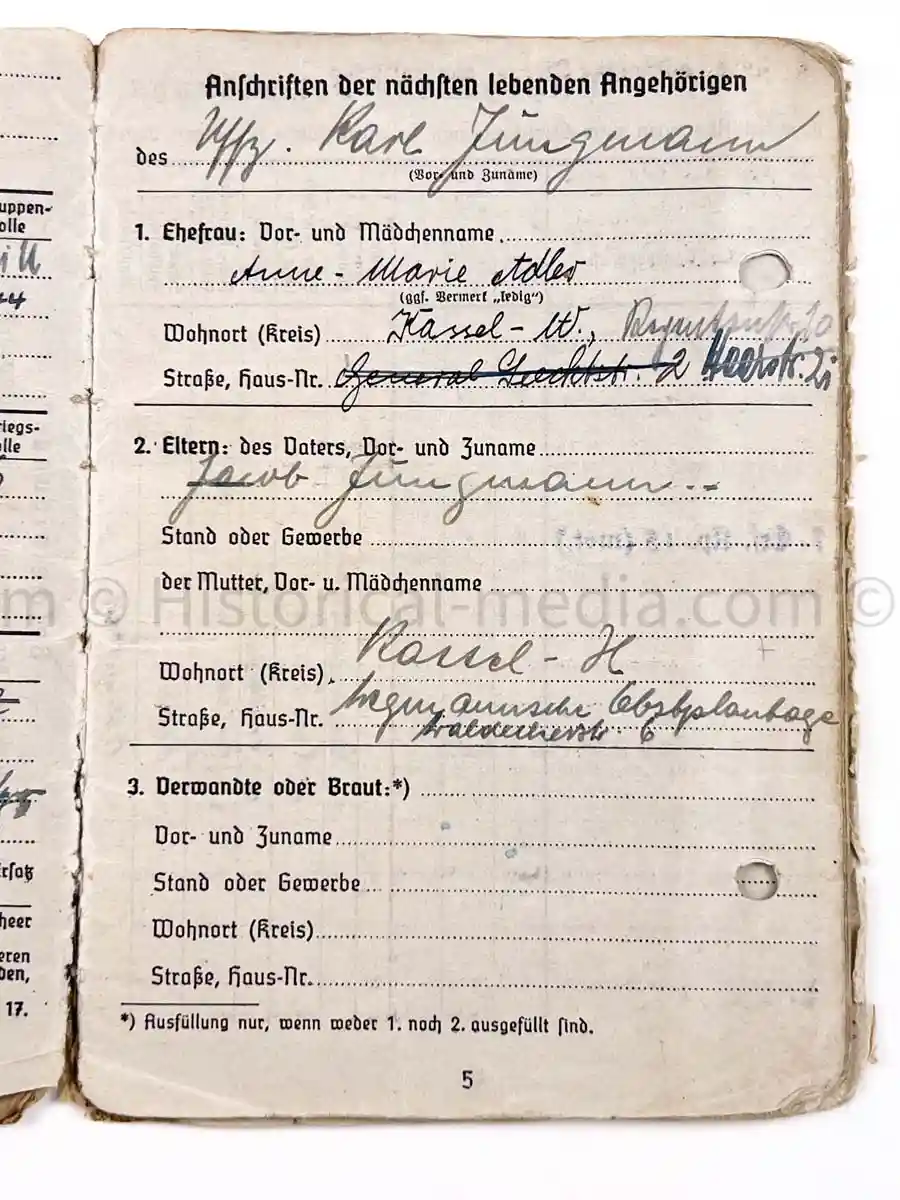 Anschriften der nächsten lebenden Angehörigen
des Uffz. Karl Jungmann
(Vor- und Zuname)
1. Ehefrau: Vor- und Mädchenname
Anne-Marie Adler
(ggf. Vermerk „ledig“)
Wohnort (Kreis) Kassel-W.,
Straße, Haus-Nr. General 2 Heerstr.
2. Eltern: des Vaters, Vor- und Zuname
Jacob Jungmann
Stand oder Gewerbe
der Mutter, Vor- u. Mädchenname
m © Historical-media.com ©
Wohnort (Kreis) Kassel-H
Straße, Haus-Nr. Wegmannsche Obstplantage
6
3. Verwandte oder Braut:*)
Vor- und Zuname
Stand oder Gewerbe
Wohnort (Kreis)
Straße, Haus-Nr.
*) Ausfüllung nur, wenn weder 1. noch 2. ausgefüllt sind.
5
uppen-
olle
riegs-
lle
rsatz
heer
eren
den,
17.